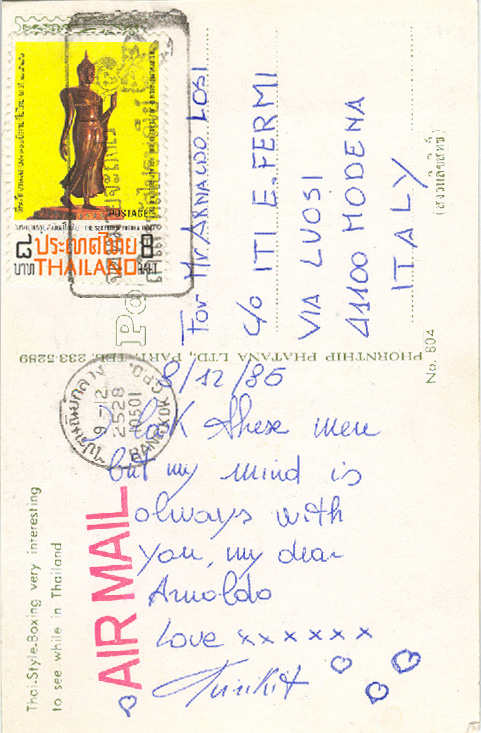 ประเทศไทย
๘
บาท
THAILAND
8
BAHT
POSTAGE
For Mr. ARNALDO LOSI
c/o ITI E. FERMI
VIA LUOSI
41100 MODENA
ITALY
(สงวนลิขสิทธิ์)
No. 804
PHORNTHIP PHATANA LTD., PART. TEL. 233-5289
9-12
2528
10501
BANGKOK G.P.O.
8/12/85
I look these men
but my mind is
always with
you, my dear
Arnoldo
Love xxxxxx
AIR MAIL
Thai-Style-Boxing very interesting
to see while in Thailand